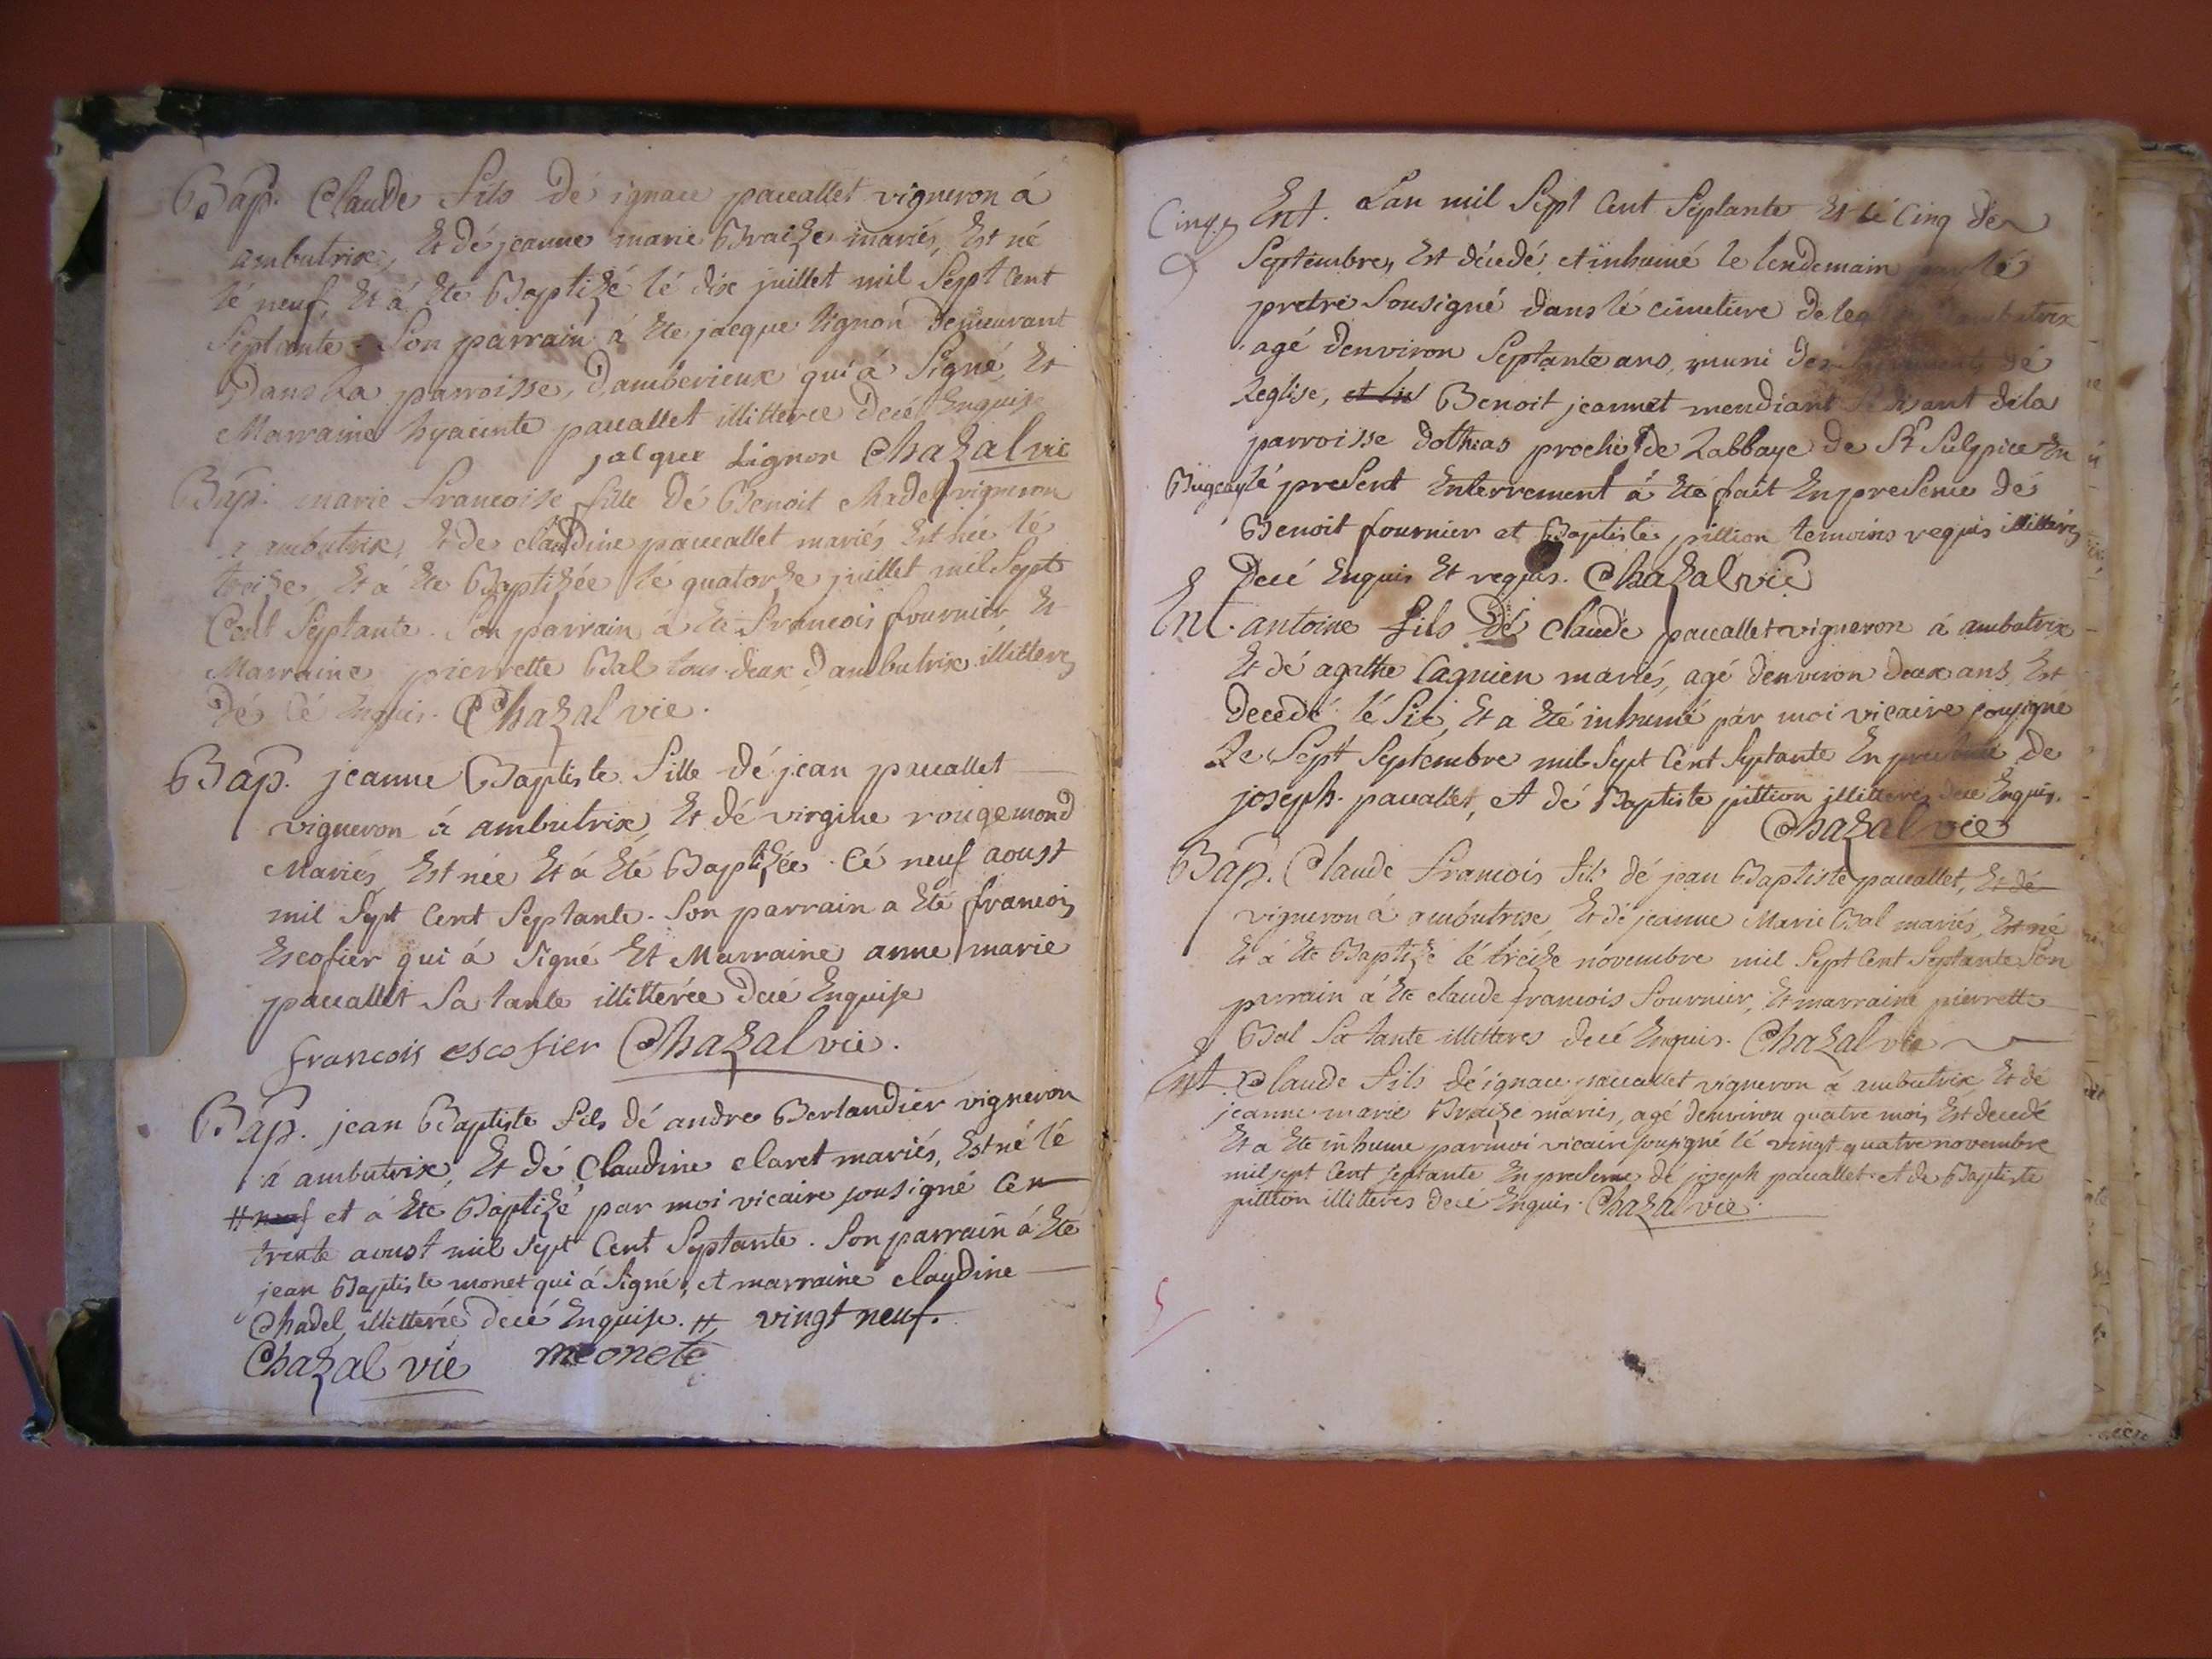 Bap. Claude fils dé ignace pauallet vigneron á
ambutrix, Et dé jeanne marie Braize mariés, Est né
lé neuf, Et á Ete Baptizé lé dix juillet mil Sept Cent
Septante. Son parrain á Ete jacque lignon demeurant
Dans La parroisse, Damberieux qui á Signé, Et
Marraine hyacinte pauallet illitteree decé Enquise
jacque Lignon Chazal vic
Bap. marie francoise fille Dé Benoit chadel vigneron
a ambutrix, Et de claudine pauallet mariés Est née lé
treize, Et á Ete Baptizée lé quatorze juillet mil Sept
Cent Septante. Son parrain á Ete francois fournier Et
Marraine pierrette Bal tous deux dambutrix illitteres
Dé Cé Enquis. Chazal vie.
Bap. jeanne Baptiste fille dé jean pauallet
vigneron á ambutrix, Et dé virgine rougemond
Mariés Est née Et á Eté Baptizée lé neuf aoust
mil Sept Cent Septante. Son parrain a Eté francois
Escofier qui á Signé Et Marraine anne marie
pauallet Sa tante illitterée decé Enquise
francois escofier Chazal vie.
Bap. jean Baptiste fils dé andre Berlandier vigneron
á ambutrix, Et dé Claudine claret mariés, Est né lé
# neuf et á Ete Baptizé par moi vicaire sousigné Ce
trente aoust mil Sept Cent Septante. Son parrain á Eté
jean Baptiste monet qui á Signé, et marraine claudine
Chadel, illitterée decé Enquise. # vingt neuf.
Chazal vie meonete
Ent. Lan mil Sept Cent Septante Et lé Cinq de
Cinq
Septembre, Est décedé, et inhumé le lendemain par lé
pretre Sousigné dans lé cimetiere de ambutrix
agé denviron Septante ans, muni des dé
Leglise, et lu Benoit jeannet mendiant Se disant dela
parroisse dothias proche de Labbaye de St Sulpice En
Bugey lé present Enterrement á Eté fait En presence dé
Benoit fournier et Baptiste pittion temoins requis illitteres
Decé Enquis Et requis. Chazal vie
Ent. antoine fils Dé claude pauallet vigneron á ambutrix
Et dé agathe Cagnien mariés, agé denviron deux ans, Est
decedé lé Six, Et a Eté inhumé par moi vicaire sousigné
Le Sept Septembre mil Sept Cent Septante En presence de
joseph pauallet, et dé Baptiste pittion illitteres decé Enquis.
Chazal vie
Bap. Claude francois fils dé jean Baptiste pauallet, Et dé
vigneron á ambutrix, Et dé jeanne Marie Bal mariés, Est né
Et á Ete Baptizé lé treize novembre mil Sept Cent Septante Son
parrain á Ete claude francois fournier, Et marraine pierrette
Bal Sa tante illitteres decé Enquis. Chazal vie
Ent. Claude fils dé ignace pauallet vigneron á ambutrix Et dé
jeanne marie Braize mariés, agé denviron quatre mois Est decedé
Et a Ete inhumé par moi vicaire sousigné lé vingt quatre novembre
mil sept Cent septante En presence dé joseph pauallet et de Baptiste
pittion illitteres decé Enquis. Chazal vie.
5